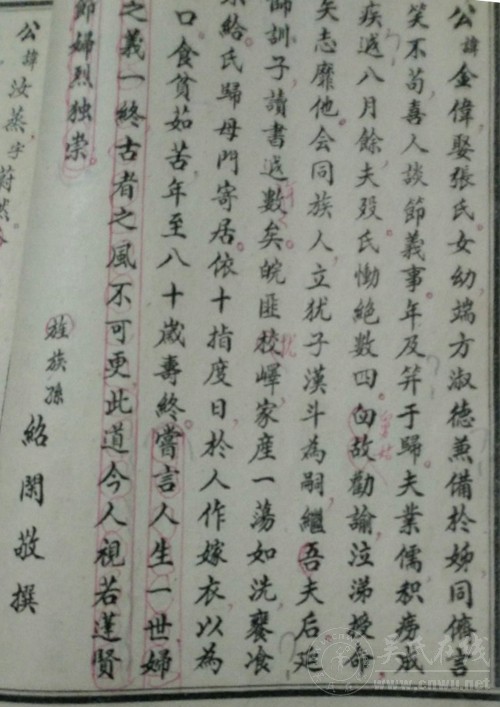 公諱金偉娶張氏女幼端方淑德兼備於姊同儕言
笑不苟喜人談節義事年及笄于歸夫業儒积癆成
疾越八月餘夫殁氏慟絕數四匈故勸諭泣涕授命
矢志靡他会同族人立犹子漢斗為嗣繼吾夫后延
師訓子讀書逃數矣皖匪校嶧家産一蕩如洗饔飡
給氏歸母門寄居依十指度日於人作嫁衣以為
口食贫茹苦年至八十歲壽終嘗言人生一世婦
之義一終古者之風不可更此道今人視若莲賢
節婦烈独崇
族孫 紹閑敬撰
公諱汝蒸字蔚然
吴氏在线
www.cnwu.net